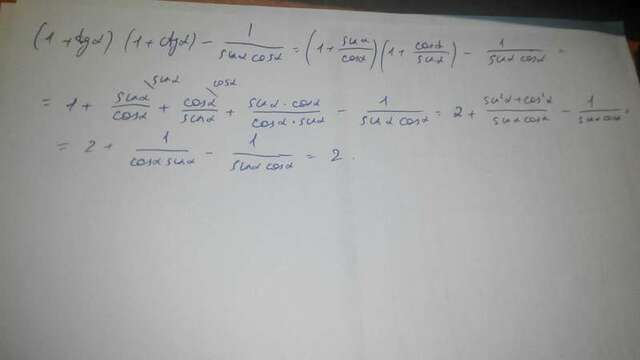 (1 + tgα) (1 + ctgα) - 1/(sinα cosα) = (1 + sinα/cosα)(1 + cosα/sinα) - 1/(sinα cosα) =
= 1 + sinα/cosα \sinα + cosα/sinα \cosα + (sinα · cosα)/(cosα · sinα) - 1/(sinα cosα) = 2 + (sin²α + cos²α)/(sinα cosα) - 1/(sinα cosα) =
= 2 + 1/(cosα sinα) - 1/(sinα cosα) = 2.